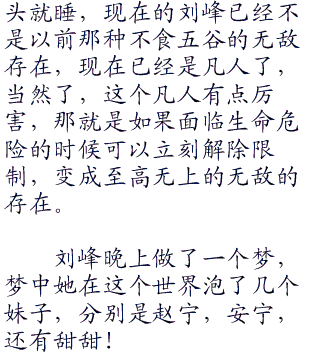 头就睡，现在的刘峰已经不
是以前那种不食五谷的无敌
存在，现在已经是凡人了，
当然了，这个凡人有点厉
害，那就是如果面临生命危
险的时候可以立刻解除限
制，变成至高无上的无敌的
存在。
刘峰晚上做了一个梦，
梦中她在这个世界泡了几个
妹子，分别是赵宁，安宁，
还有甜甜！